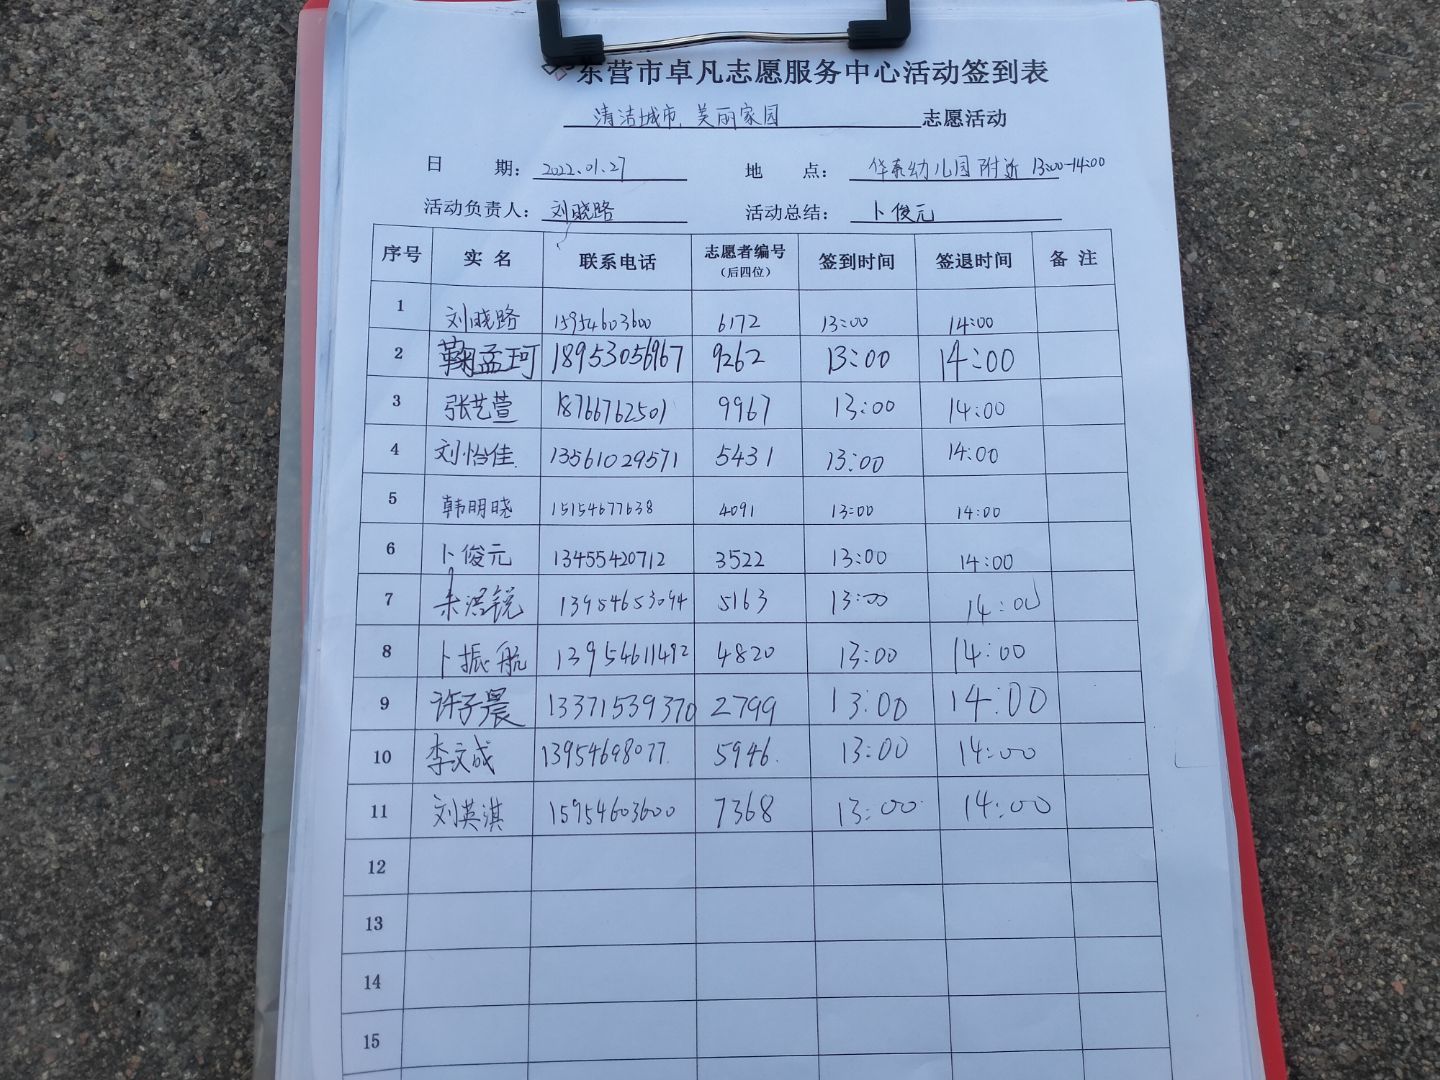 东营市卓凡志愿服务中心活动签到表
清洁城市,美丽家园 志愿活动
日 期: 2022.01.27 地 点: 华泰幼儿园附近 13:00-14:00
活动负责人: 刘晓路 活动总结: 卜俊元
序号 实名 联系电话 志愿者编号(后四位) 签到时间 签退时间 备注
1 刘晓路 15954603600 6172 13:00 14:00
2 鞠孟珂 18953056967 9262 13:00 14:00
3 张艺萱 18766762501 9967 13:00 14:00
4 刘怡佳 13561029571 5431 13:00 14:00
5 韩明晓 15154677638 4091 13:00 14:00
6 卜俊元 13455420712 3522 13:00 14:00
7 13954653094 5163 13:00 14:00
8 卜振航 13954611492 4820 13:00 14:00
9 许子晨 13371539370 2799 13:00 14:00
10 李文成 13954698077 5946 13:00 14:00
11 刘英淇 15954603600 7368 13:00 14:00
12
13
14
15